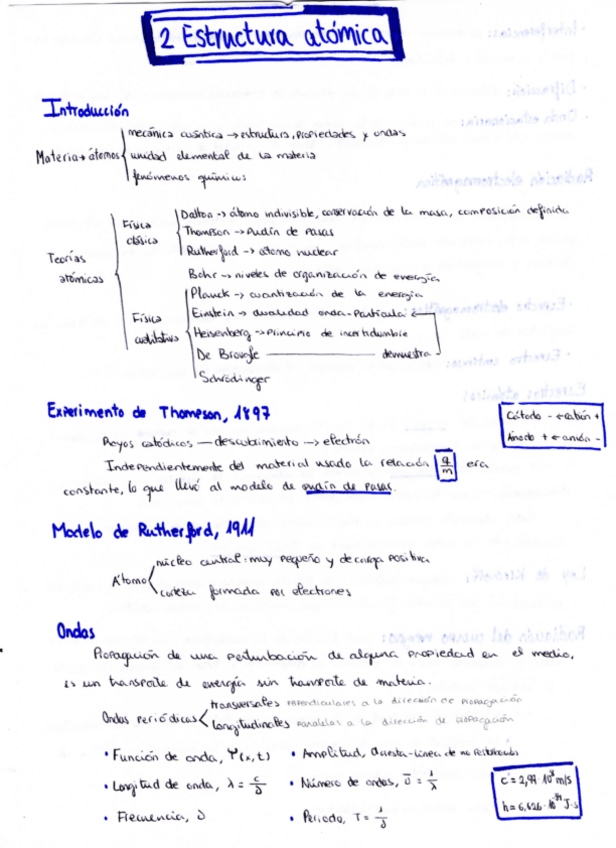 2 Estructura atómica
Introducción
mecánica cuántica → estructura, propiedades y ondas
Materia → átomos unidad elemental de la materia
fenómenos químicos
Dalton → átomo indivisible, conservación de la masa, composición definida
Física clásica Thompson → Pudín de pasas
Rutherford → átomo nuclear
Teorías atómicas
Bohr → niveles de organización de energía
Planck → cuantización de la energía
Física Einstein → dualidad onda-Partícula
Heisenberg → Principio de incertidumbre
De Brougle demuestra
Schrödinger
Experimento de Thompson, 1897
Cátodo - ← catión +
Ánodo + ← anión -
Rayos catódicos — descubrimiento → electrón
Independientemente del material usado la relación q/m era
constante, lo que llevó al modelo de pudín de pasas.
Modelo de Rutherford, 1911
núcleo central: muy pequeño y de carga positiva
Átomo
corteza formada por electrones
Ondas
Propagación de una perturbación de alguna propiedad en el medio,
es un transporte de energía sin transporte de materia.
transversales perpendiculares a la dirección de propagación
Ondas periódicas
longitudinales paralelas a la dirección de propagación
• Función de onda, Ψ(x,t) • Amplitud, cresta-línea de no perturbación
• Longitud de onda, λ = c/υ • Número de ondas, ῡ = 1/λ
• Frecuencia, υ • Periodo, T = 1/υ
c = 2,99·10⁸ m/s
h = 6,626·10⁻³⁴ J·s